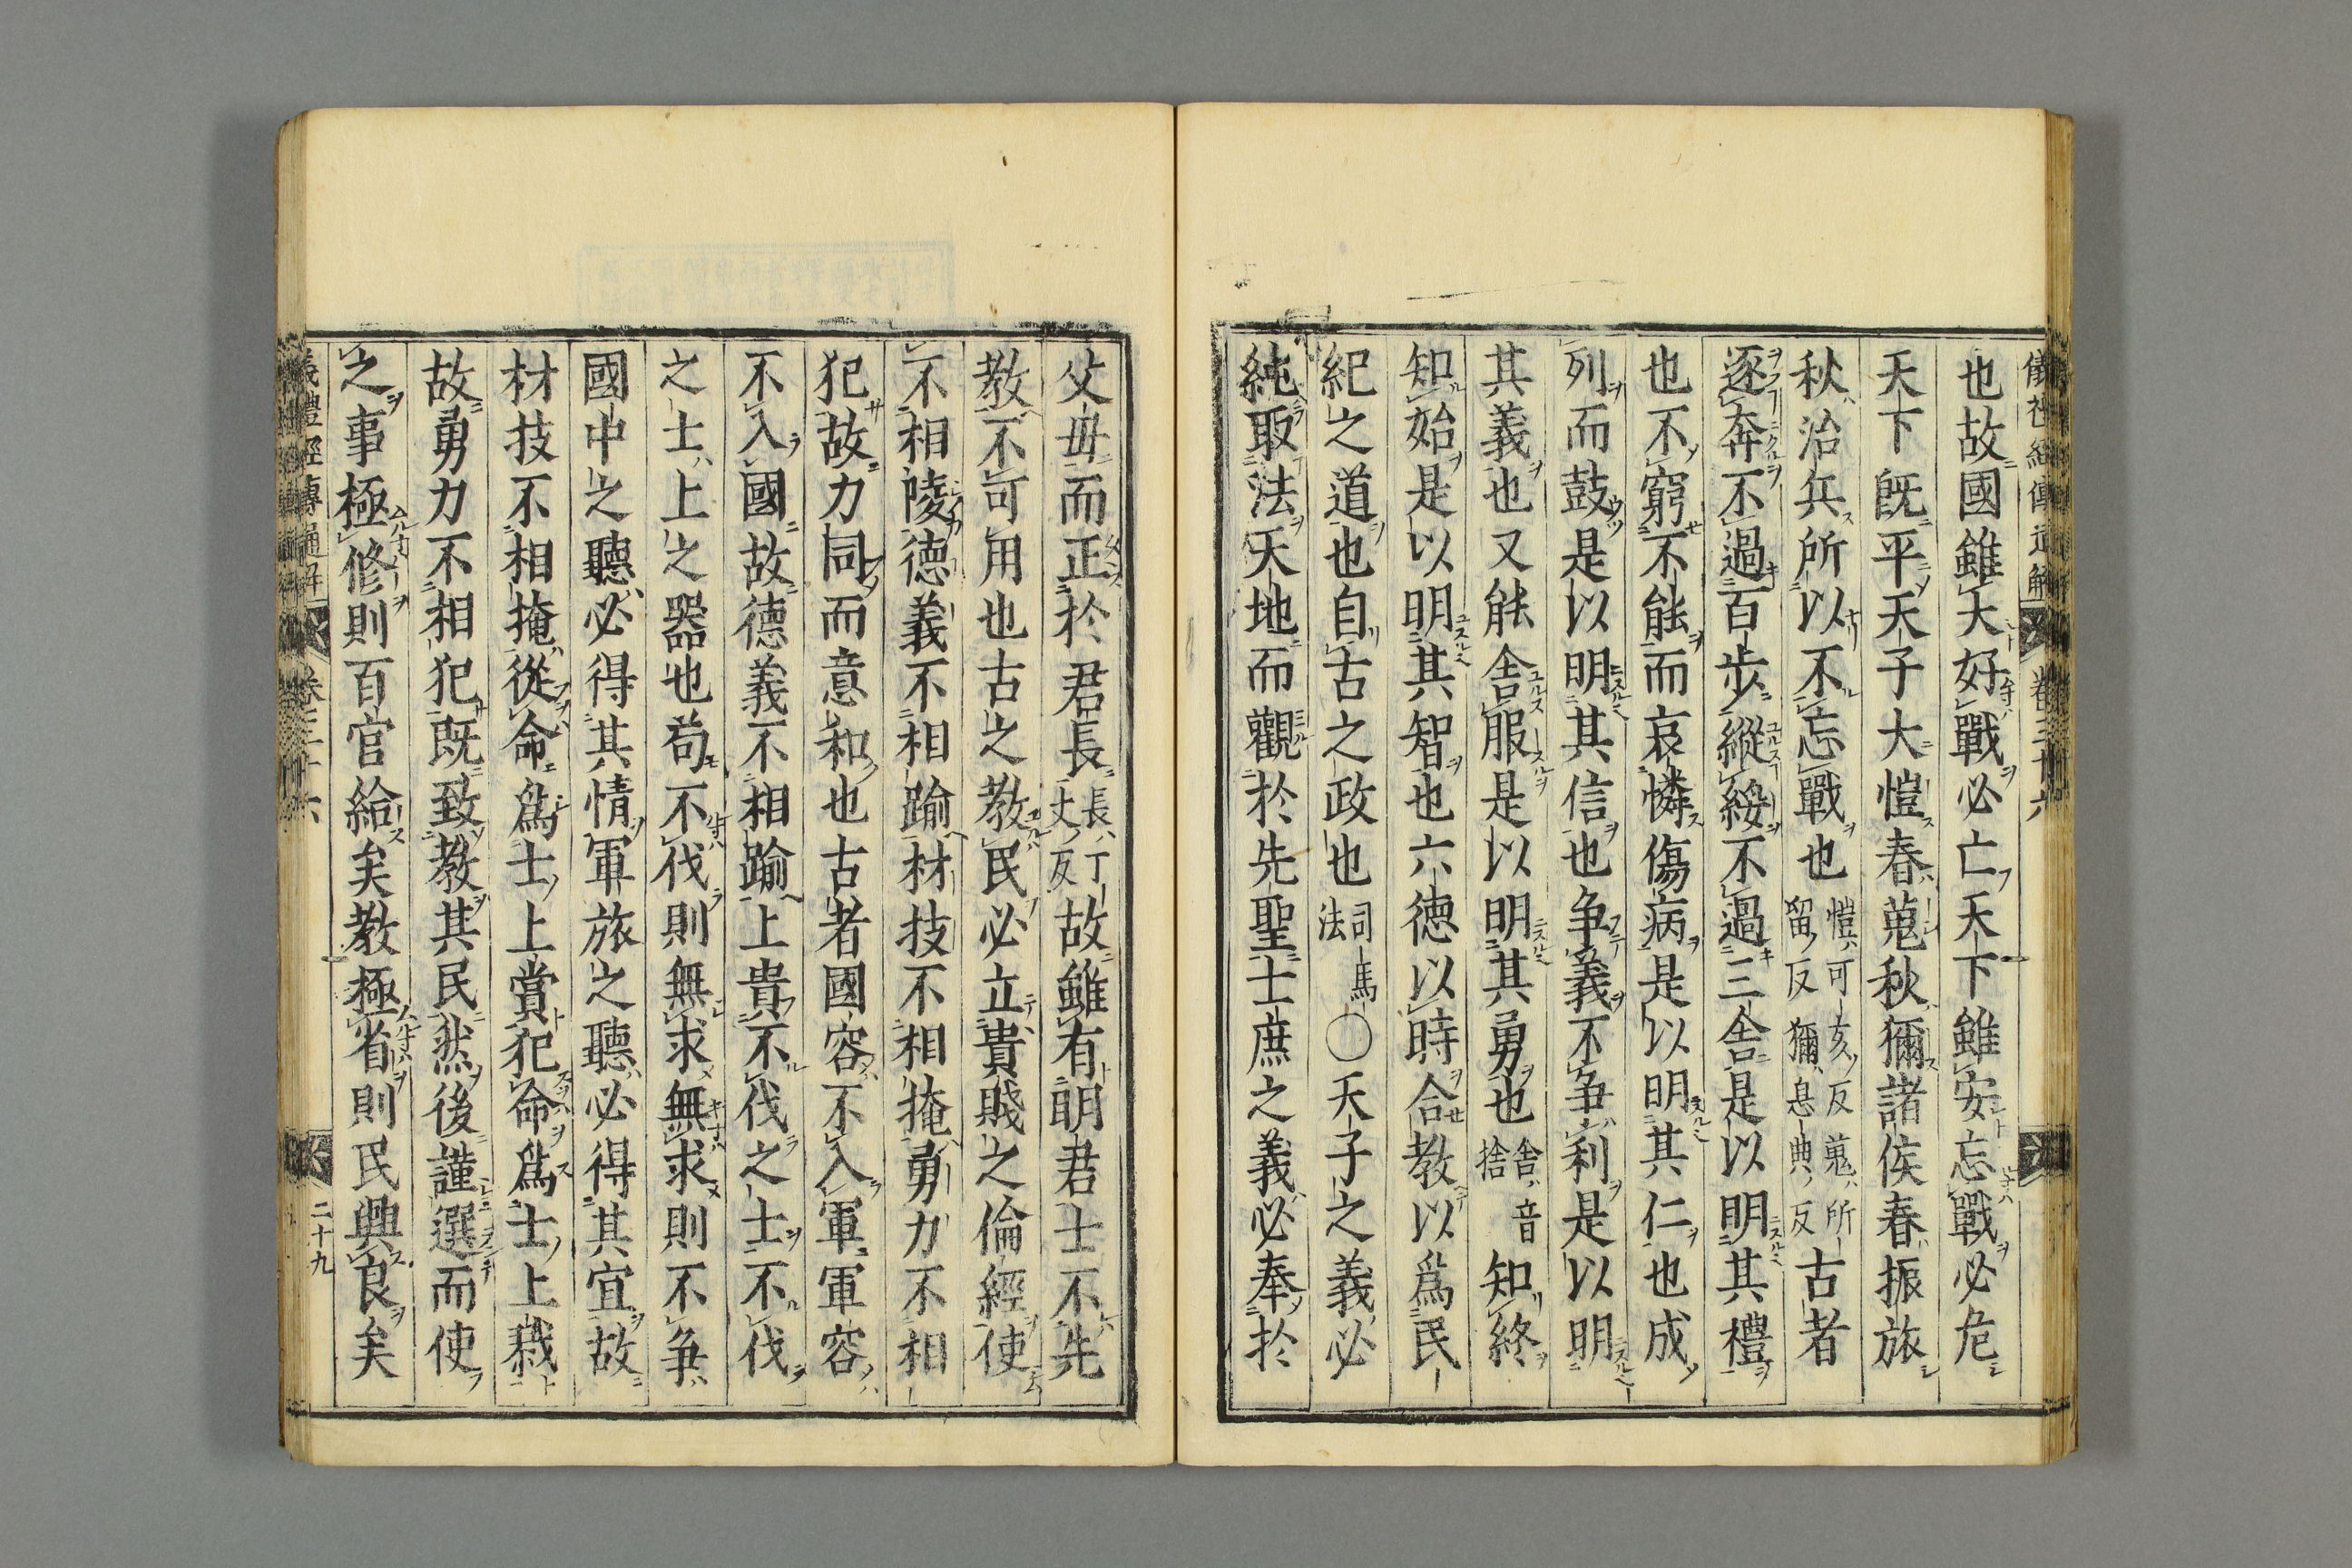 儀禮經傳通解 卷三十六
也故國雖大好戰必亡天下雖安忘戰必危
天下既平天子大愷春蒐秋獮諸侯春振旅
秋治兵所以不忘戰也愷可亥反蒐所留反獮息典反古者
逐奔不過百步縱綏不過三舍是以明其禮
也不窮不能而哀憐傷病是以明其仁也成
列而鼓是以明其信也争義不争利是以明
其義也又能舍服是以明其勇也舍音捨知終
知始是以明其智也六德以時合教以爲民
紀之道也自古之政也司馬法○天子之義必
純取法天地而觀於先聖士庶之義必奉於
父母而正於君長長丁丈反故雖有明君士不先
教不可用也古之教民必立貴賤之倫經使
不相陵德義不相踰材技不相掩勇力不相
犯故力同而意和也古者國容不入軍軍容
不入國故德義不相踰上貴不伐之士不伐
之士上之器也苟不伐則無求無求則不争
國中之聽必得其情軍旅之聽必得其宜故
材技不相掩從命爲士上賞犯命爲士上戮
故勇力不相犯既致教其民然後謹選而使
之事極修則百官給矣教極省則民興良矣
儀禮經傳通解 卷三十六 二十九